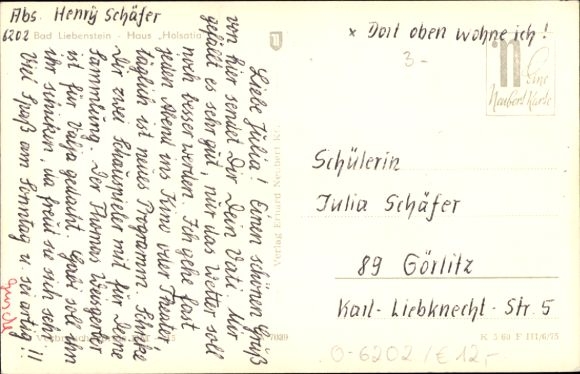 Abs. Henry Schäfer
6202 Bad Liebenstein - Haus „Holsatia
Liebe Julia! Einen schönen Gruß
von hier sendet Dir Dein Vati. Mir
gefällt es sehr gut, nur das Wetter soll
noch besser werden. Ich gehe fast
jeden Abend ins Kino oder Theater,
täglich ist neues Programm. Schicke
Dir zwei Schauspieler mit für Deine
Sammlung. Der Thomas Weisgerber
ist für Valja gedacht. Gabi soll ihn
ihr schicken, da freut sie sich sehr.
Viel Spaß am Sonntag u. sei artig!!
Verlag Erhard Neubert KG
7039
x Dort oben wohne ich!
3-
n
Eine
Neubert Karte
Schülerin
Julia Schäfer
89 Görlitz
Karl-Liebknecht-Str. 5
K 3 60 F III/6/75
O-6202/€12,-